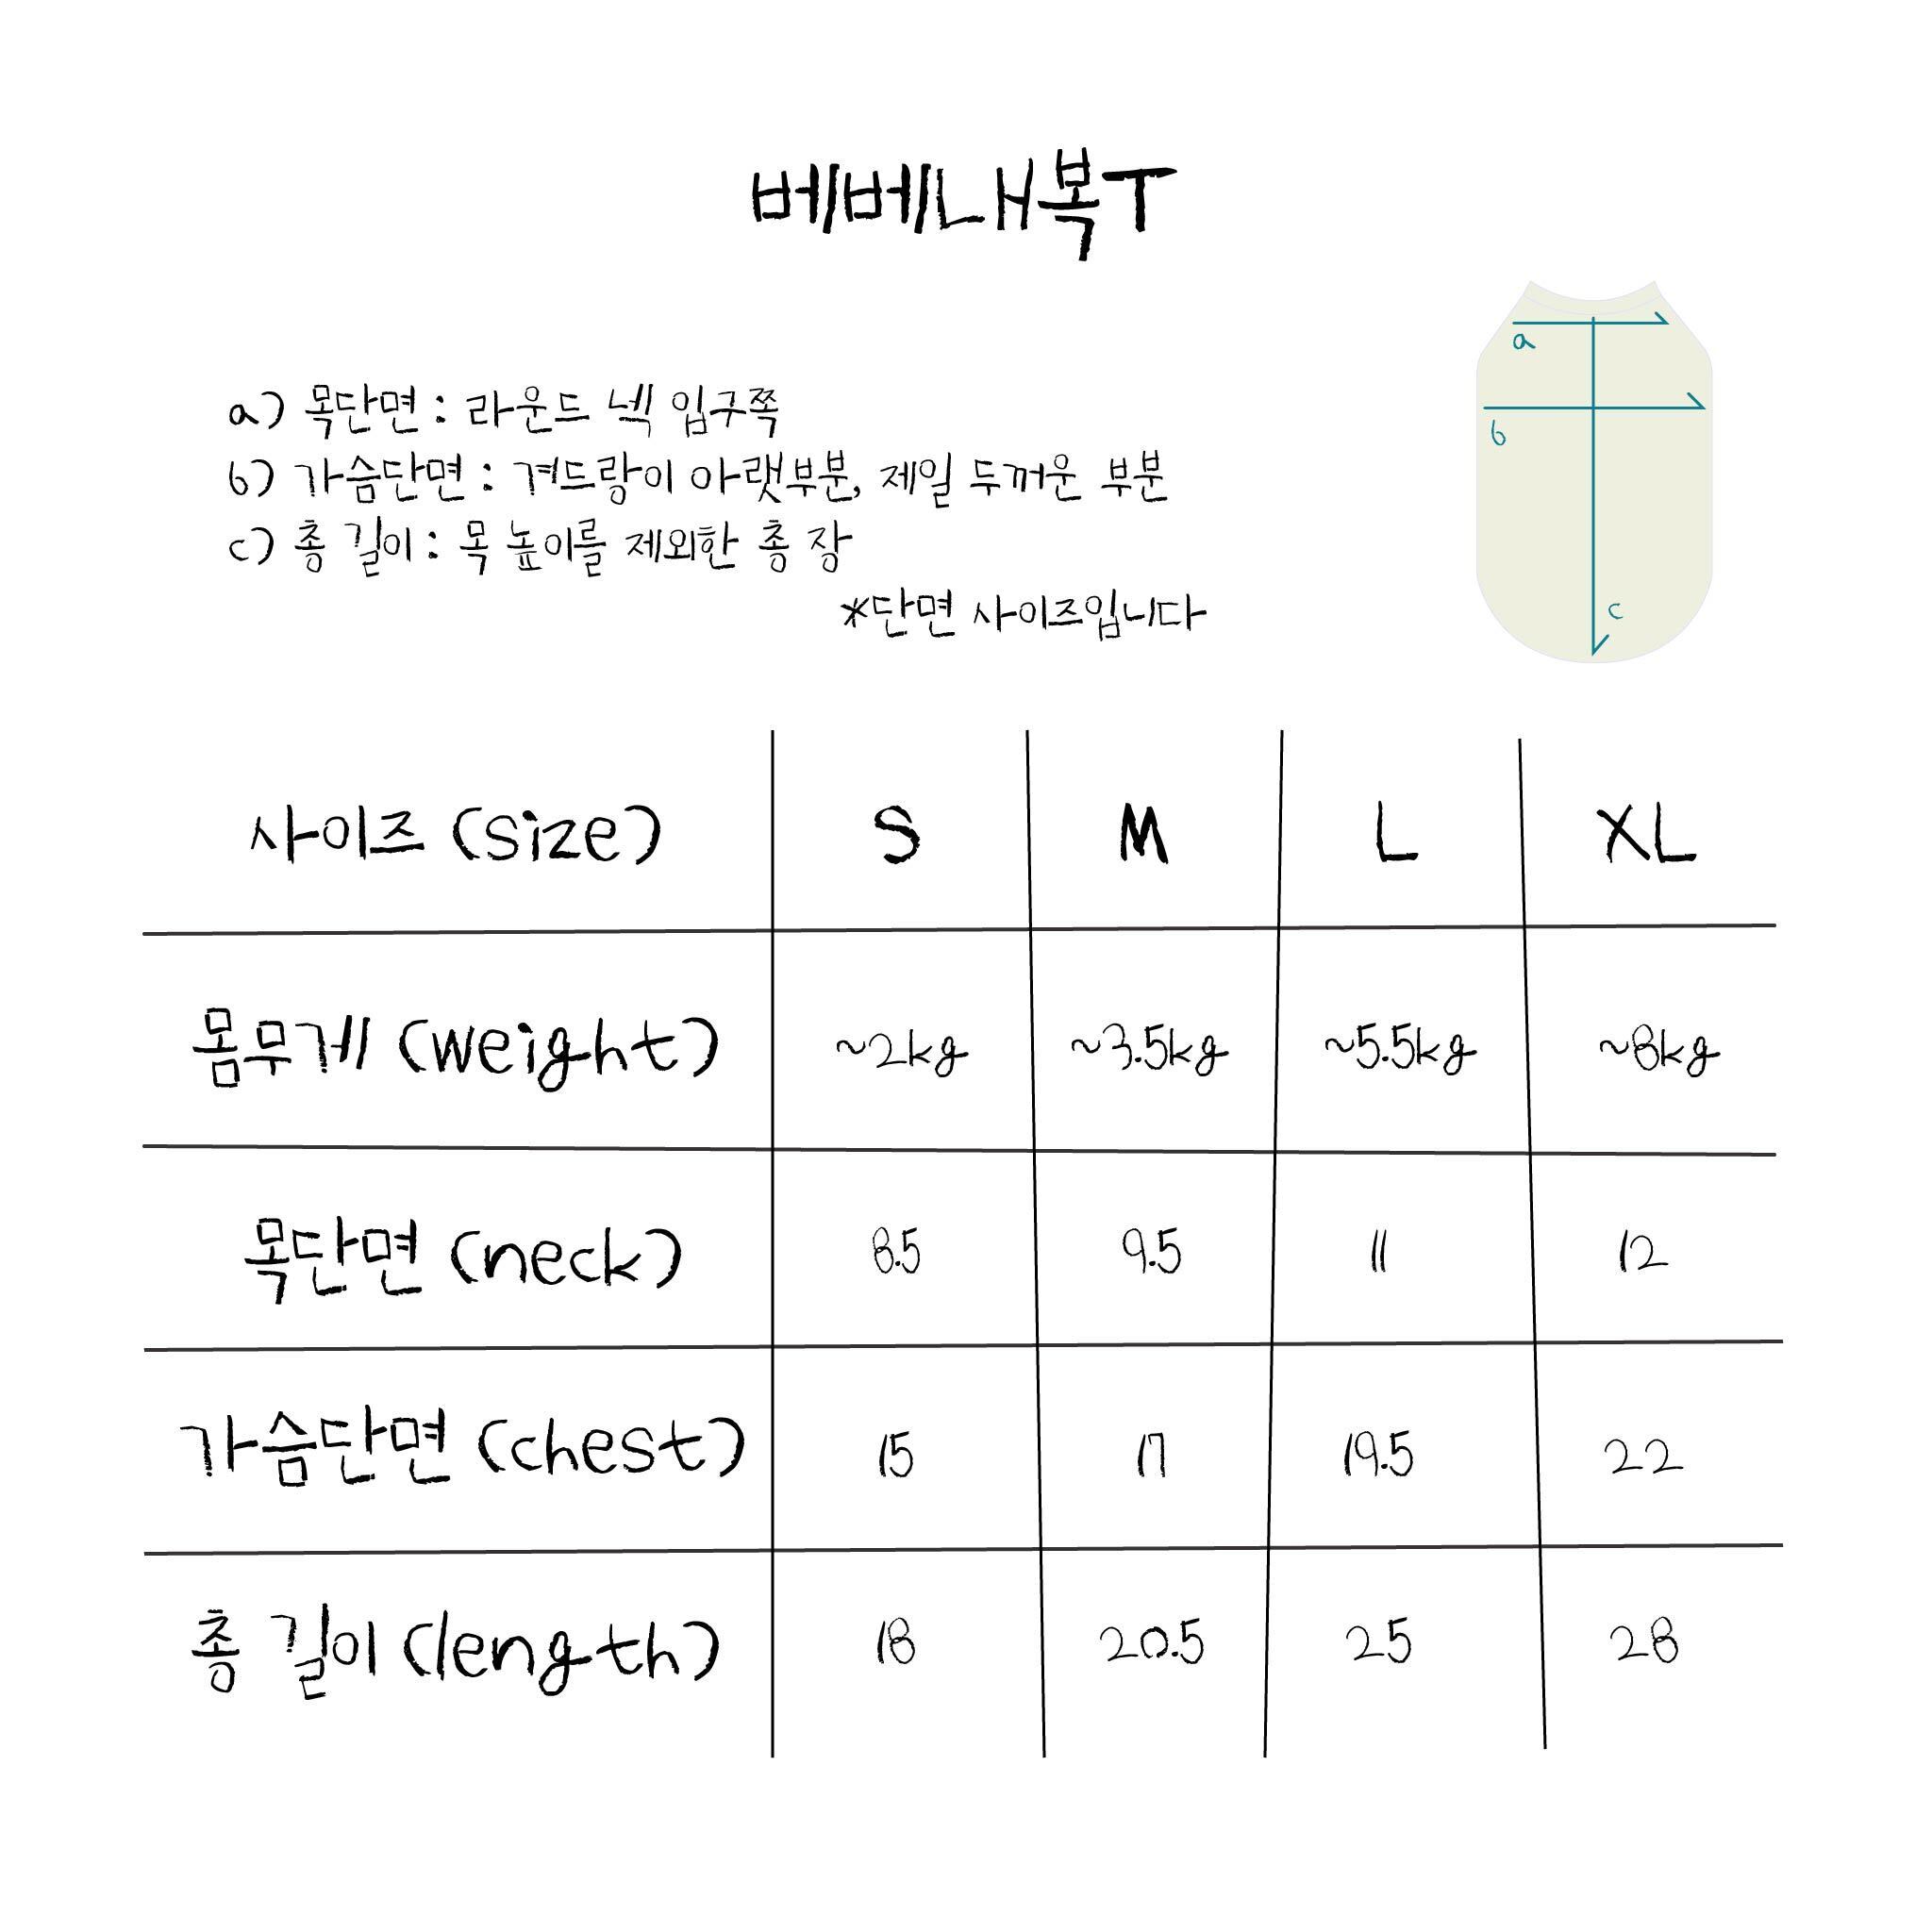 베베내복T
a) 목단면 : 라운드 넥 입구쪽
b) 가슴단면 : 겨드랑이 아랫부분, 제일 두꺼운 부분
c) 총 길이 : 목 높이를 제외한 총 장
*단면 사이즈입니다
a
b
c
사이즈 (size) S M L XL
몸무게 (weight) ~2kg ~3.5kg ~5.5kg ~8kg
목단면 (neck) 8.5 9.5 11 12
가슴단면 (chest) 15 17 19.5 22
총 길이 (length) 18 20.5 25 28